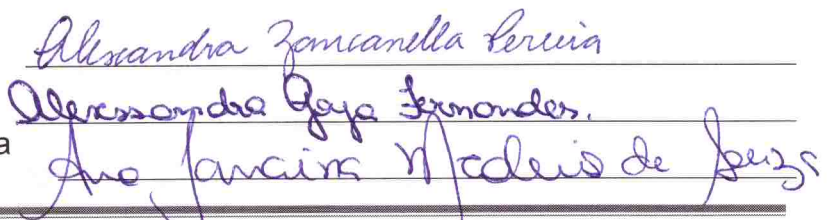 Alexandra Zancanella Pereira
Alexssandra Gaya Fernandes.
a Ana Janaina Medeiros de Souza